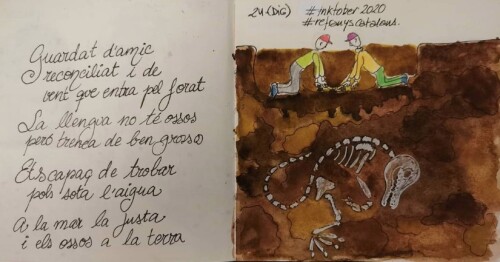 Guardat d'amic
reconciliat i de
vent que entra pel forat
La llengua no té ossos
però trenca de ben grossos
Ets capaç de trobar
pols sota l'aigua
A la mar la fusta
i els ossos a la terra
24 (DIG)
#inktober2020
#refranyscatalans.